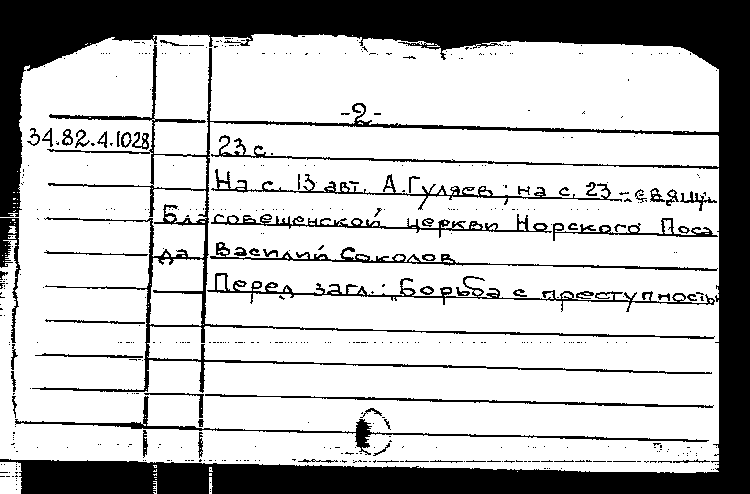 -2-
34.82.4.1028
23 с.
На с. 13 авт. А.Гуляев; на с. 23 - свящ.
Благовещенской церкви Норского Поса
да Василий Соколов
Перед загл.: „Борьба с преступность"